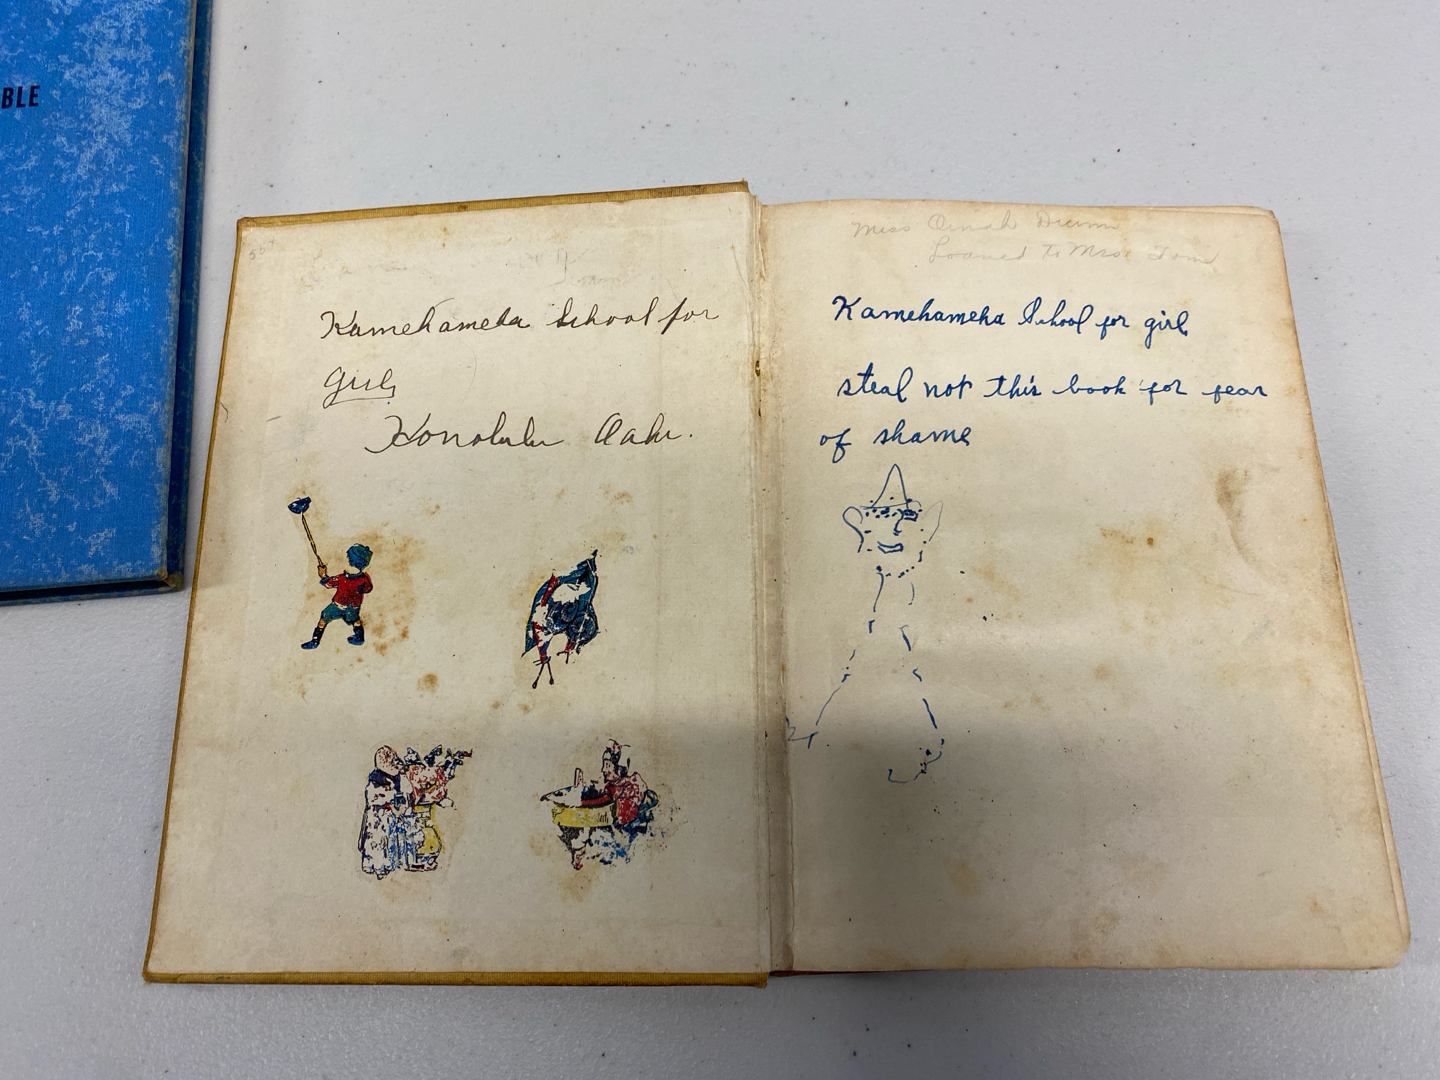 BLE
Kamehameha School for
girls
Honolulu Oahu.
Miss Dunn
Loaned to Mrs.
Kamehameha School for girl
steal not this book for fear
of shame